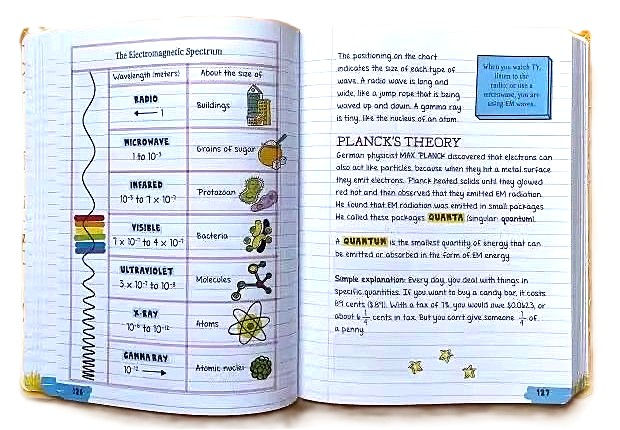 The Electromagnetic Spectrum
Wavelength (meters) About the size of
RADIO
← 1
Buildings
MICROWAVE
1 to 10⁻³
Grains of sugar
INFARED
10⁻³ to 7 x 10⁻⁷
Protozoan
VISIBLE
7 x 10⁻⁷ to 4 x 10⁻⁷
Bacteria
ULTRAVIOLET
Molecules
X-RAY
Atoms
GAMMA RAY
10⁻¹² →
Atomic nuclei
126
The positioning on the chart
indicates the size of each type of
wave. A radio wave is long and
wide, like a jump rope that is being
waved up and down. A gamma ray
is tiny, like the nucleus of an atom.
When you watch TV,
listen to the
radio, or use a
microwave, you are
using EM waves.
PLANCK'S THEORY
German physicist MAX PLANCK discovered that electrons can
also act like particles, because when they hit a metal surface
they emit electrons. Planck heated solids until they glowed
red hot and then observed that they emitted EM radiation.
He found that EM radiation was emitted in small packages.
He called these packages QUANTA (singular: quantum).
A QUANTUM is the smallest quantity of energy that can
be emitted or absorbed in the form of EM energy.
Simple explanation: Every day, you deal with things in
specific quantities. If you want to buy a candy bar, it costs
89 cents ($.89). With a tax of 7%, you would owe $0.0623, or
about 6 1/4 cents in tax. But you can't give someone 1/4 of
a penny.
127